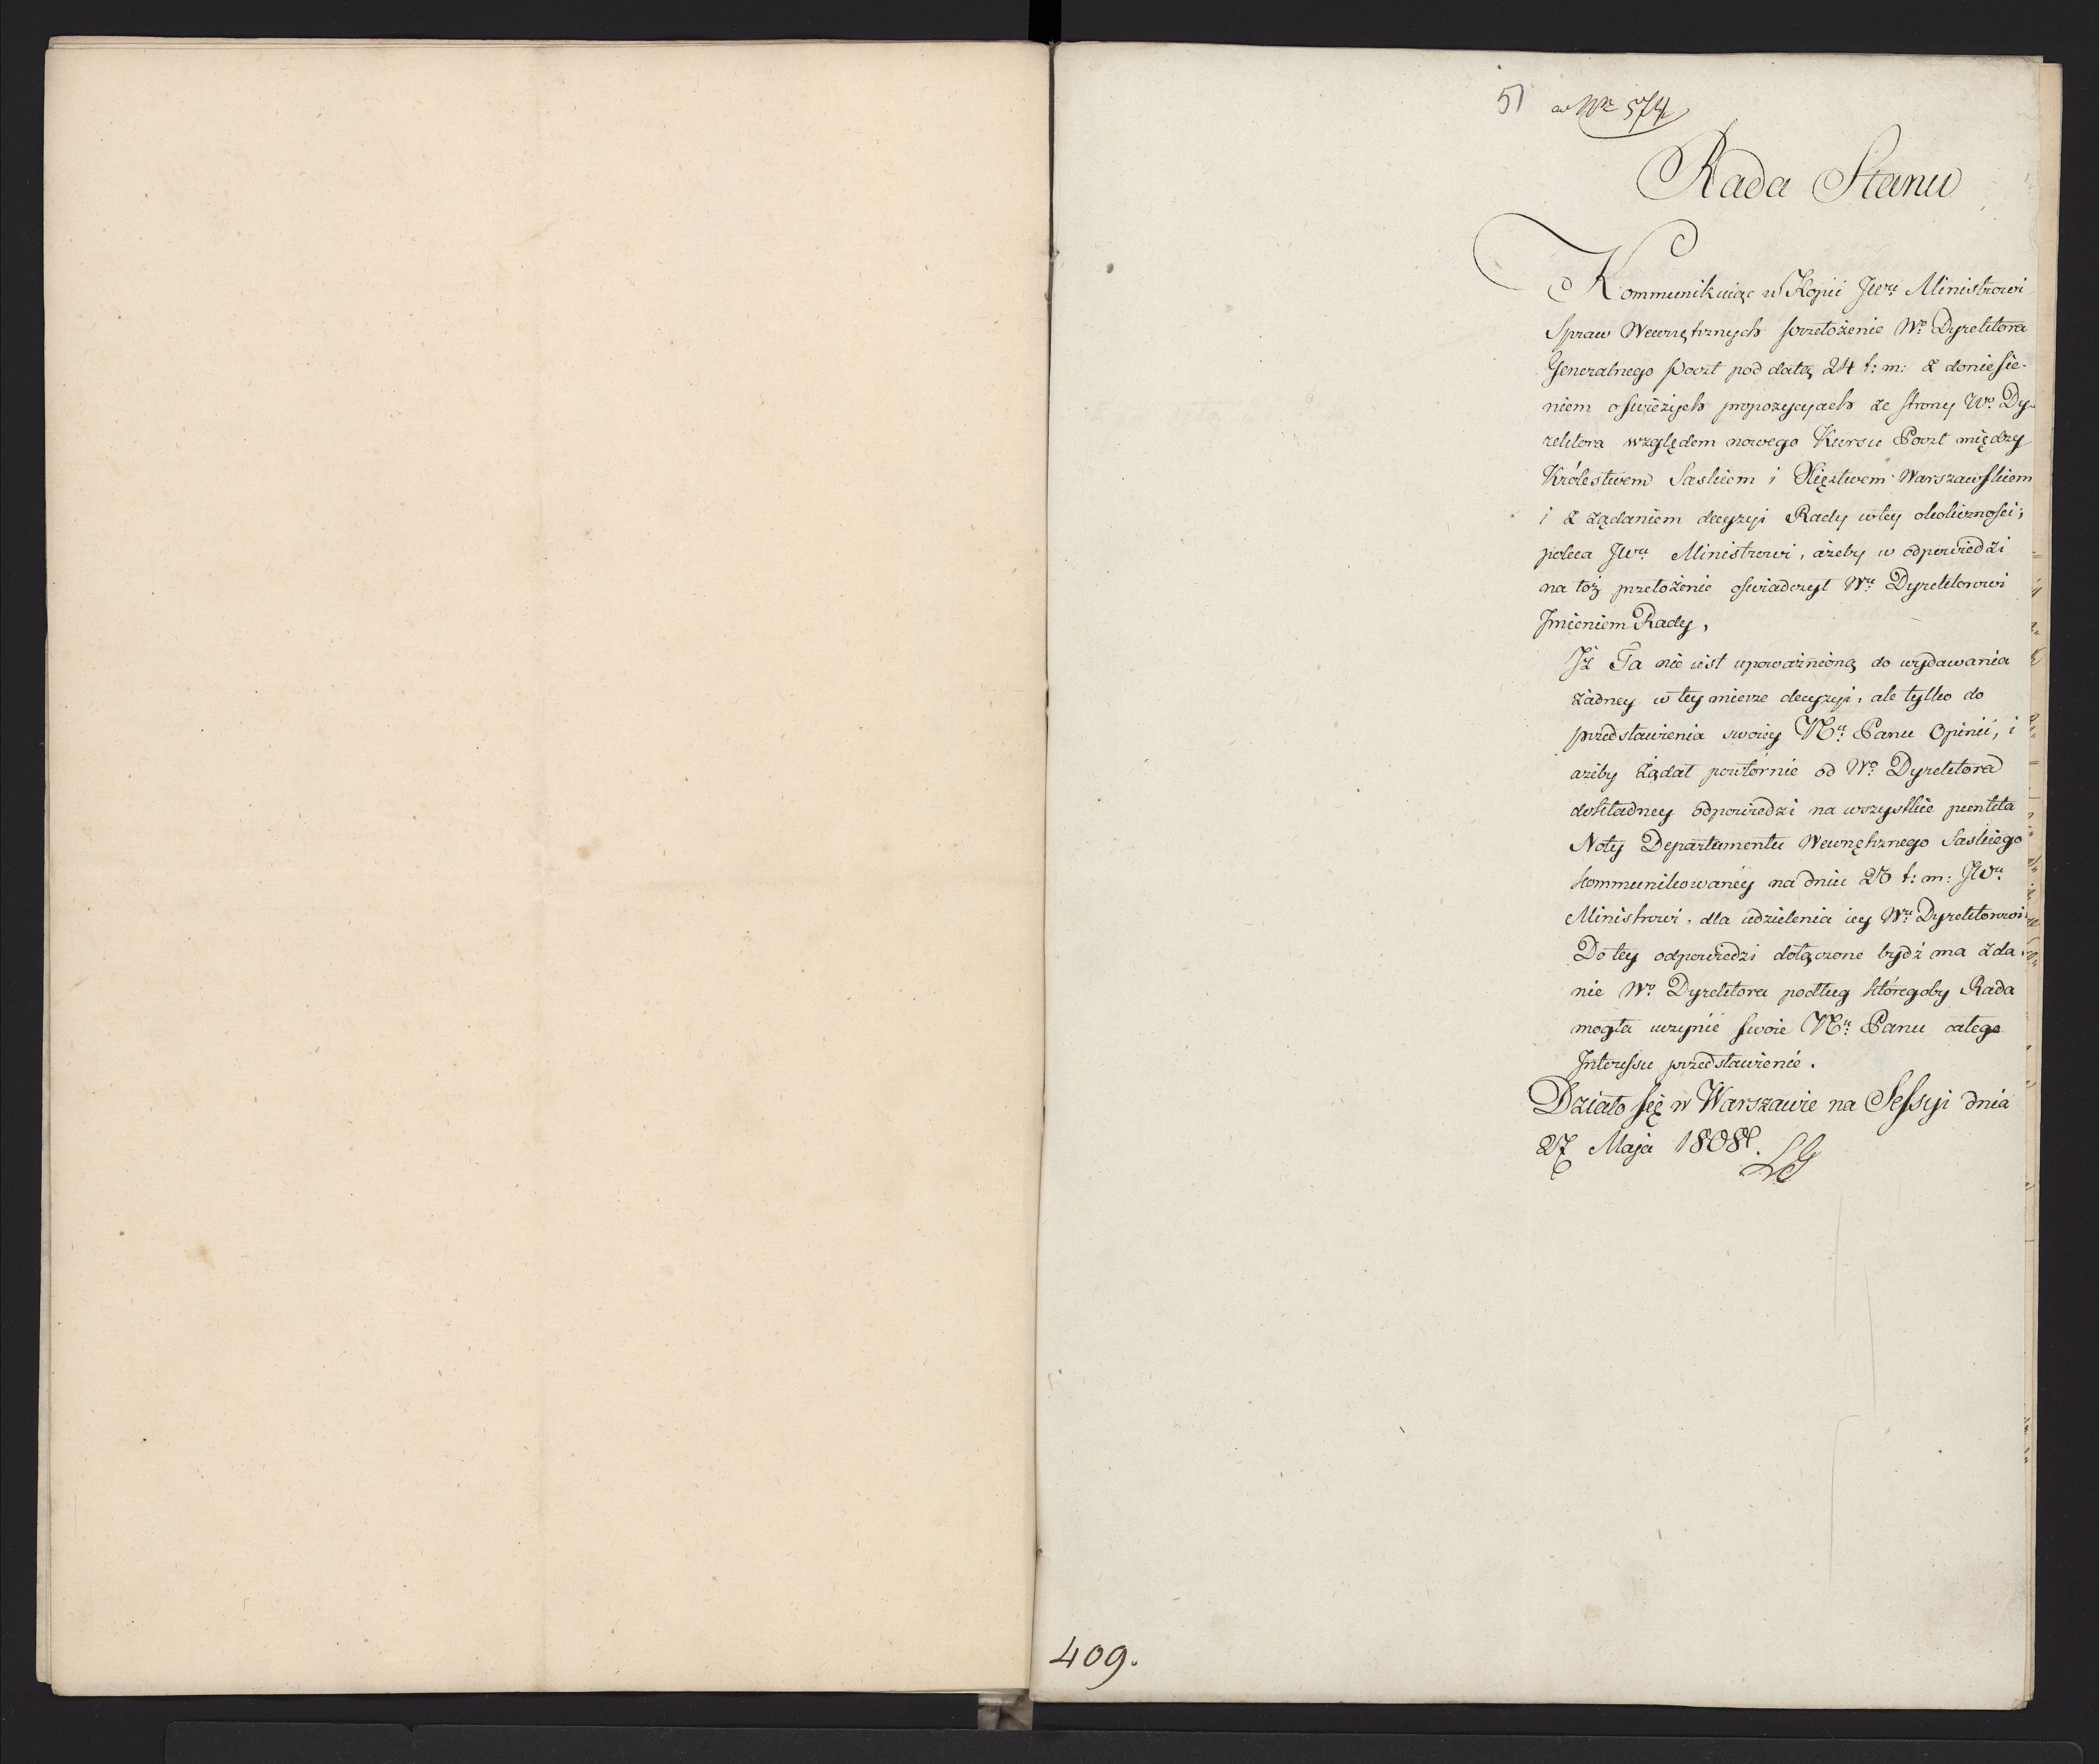 51 ad Nr 574
Rada Stanu
Kommunikuiąc w Kopii JWu: Ministrowi
Spraw Wewnętrznych przełożenie Wo: Dyrektora
Generalnego Poczt pod datą 24 t: m: z doniesie-
niem o świeżych propozycyach ze strony Wo: Dy-
rektora względem nowego Kursu Poczt między
Królestwem Saskiem i Xięstwem Warszawskiem
i z żądaniem decyzyi Rady w tey okoliczności;
poleca JWu: Ministrowi, ażeby w odpowiedzi
na toż przełożenie oświadczył Wu: Dyrektorowi
Imieniem Rady,
Iż Ta nie iest upoważnioną do wydawania
żadney w tey mierze decyzyi, ale tylko do
przedstawienia swoiey Nu: Panu Opinii, i
ażeby żądał powtórnie od Wo: Dyrektora
dokładney odpowiedzi na wszystkie punkta
Noty Departamentu Wewnętrznego Saskiego
kommunikowanéy na dniu 20 t: m: JWu:
Ministrowi, dla udzielenia iey Wu: Dyrektorowi.
Do tey odpowiedzi dołączone bydź ma zda-
nie Wo: Dyrektora podług któregoby Rada
mogła uczynić swoie Nu: Panu całego
Interessu przedstawienie.
Działo się w Warszawie na Sessyi dnia
27 Maja 1808 r.
LG
409.